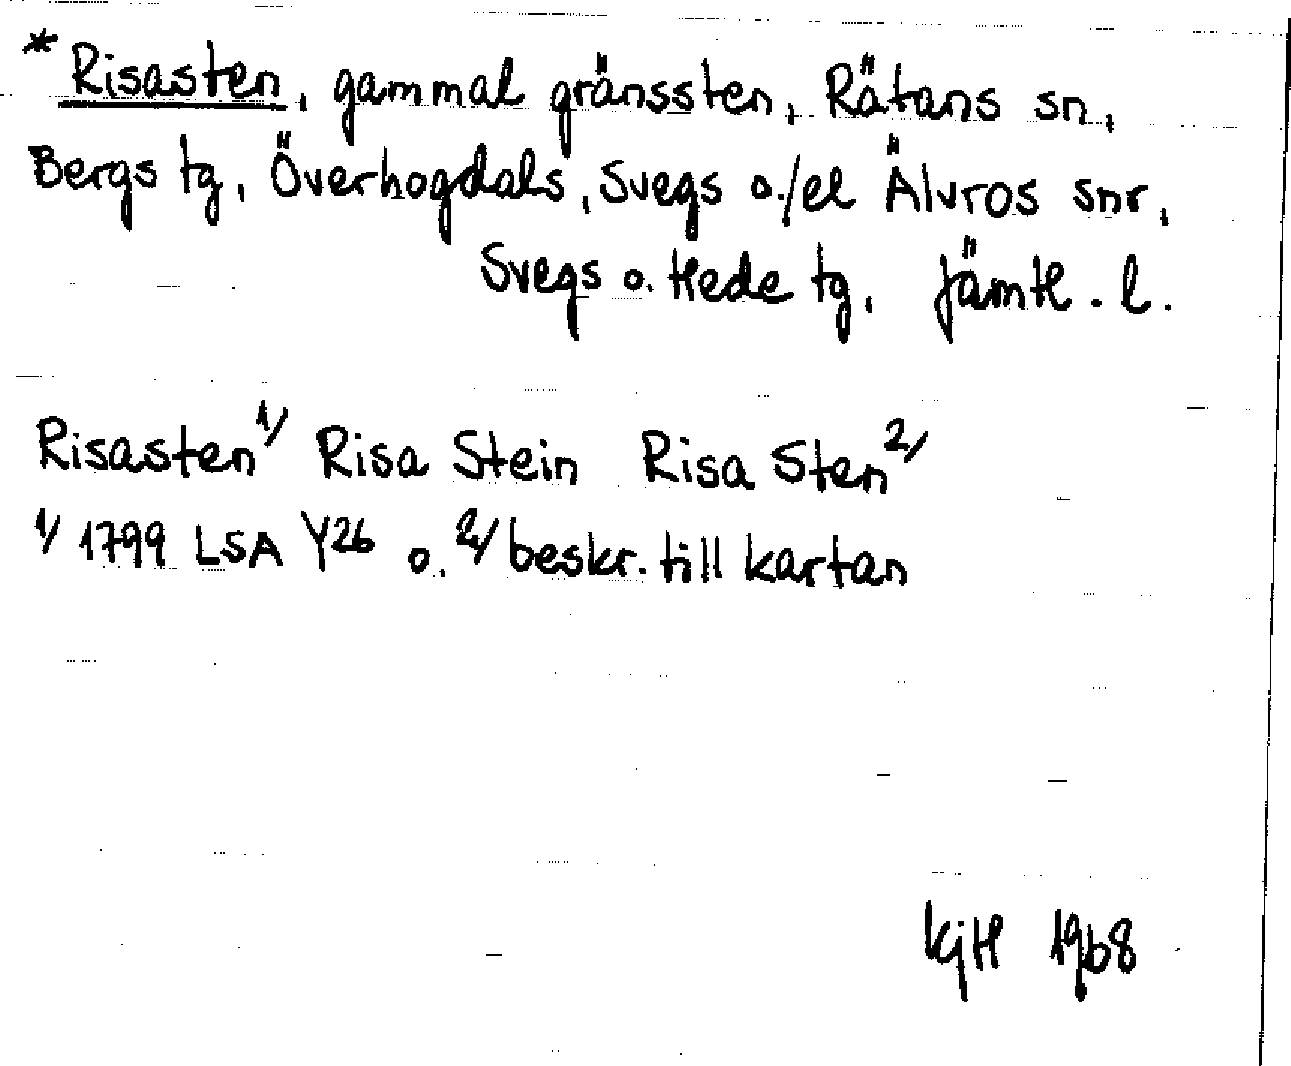 * Risasten, gammal gränssten, Rätans sn,
Bergs tg, Överhogdals, Svegs o./el Älvros snr,
Svegs o. Hede tg, Jämtl. l.
Risasten 1/ Risa Stein Risa Sten 2/
1/ 1799 LSA Y26 o. 2/ beskr. till kartan
KjH 1968